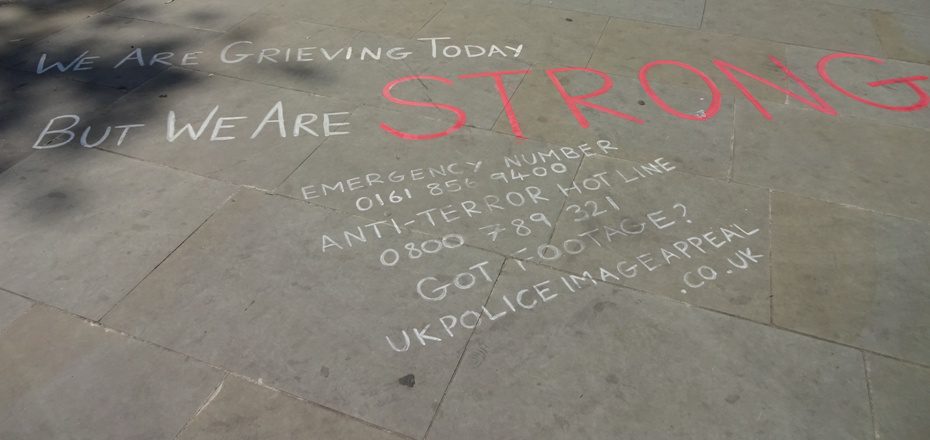 WE ARE GRIEVING TODAY
BUT WE ARE STRONG
EMERGENCY NUMBER
0161 856 9400
ANTI-TERROR HOTLINE
0800 789 321
GOT FOOTAGE?
UKPOLICEIMAGEAPPEAL
.CO.UK